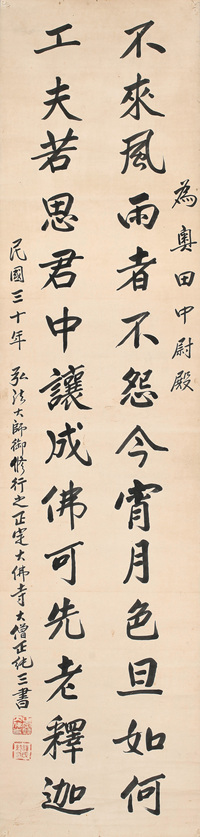 為奧田中尉殿
不來風雨者不怨今宵月色旦如何
工夫若思君中讓成佛可先老釋迦
民國三十年 弘法大師御修行之正定大佛寺大僧正純三書